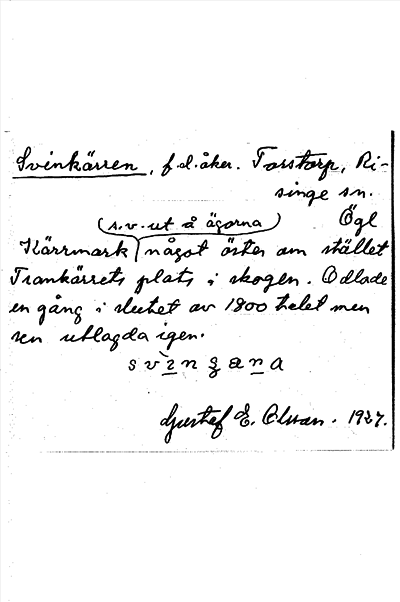 Svinkärren, f.d. åker. Torstorp, Ri-
singe sn.
(s.v. ut å ägorna) Ögl
Kärrmark något öster om stället
Trankärrets plats i skogen. Odlade
en gång i slutet av 1800 talet men
sen utlagda igen.
Gustaf E. Olsson. 1927.